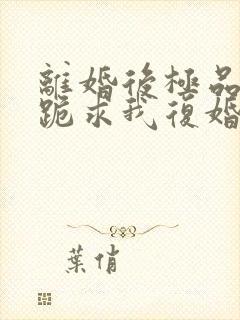 離婚後極品
跪求我復婚
葉俏